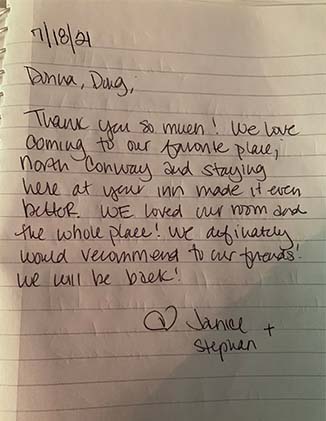 7/18/21
Donna, Doug,
Thank you so much! We love
coming to our favorite place,
North Conway and staying
here at your inn made it even
better. WE loved our room and
the whole place! We definately
would recommend to our friends!
We will be back!
♡ Janice +
Stephan